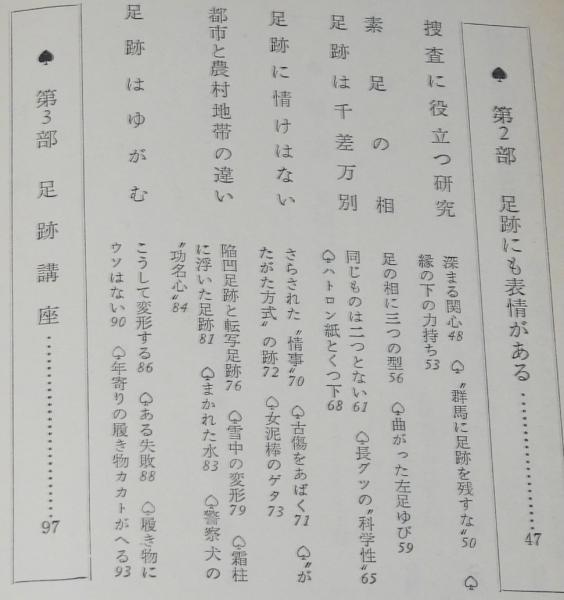 ♠ 第2部 足跡にも表情がある……………………47
捜査に役立つ研究
深まる関心48 ♤〝群馬に足跡を残すな〟50 ♤
縁の下の力持ち53
素足の相
足の相に三つの型56 ♤曲がった左足ゆび59
足跡は千差万別
同じものは二つとない61 ♤長グツの〝科学性〟65
♤ハトロン紙とくつ下68
足跡に情けはない
さらされた〝情事〟70 ♤古傷をあばく71 ♤〝が
たがた方式〟の跡72 ♤女泥棒のゲタ73
都市と農村地帯の違い
陥凹足跡と転写足跡76 ♤雪中の変形79 ♤霜柱
に浮いた足跡81 ♤まかれた水83 ♤警察犬の
〝功名心〟84
足跡はゆがむ
こうして変形する86 ♤ある失敗88 ♤履き物に
ウソはない90 ♤年寄りの履き物カカトがへる93
♠ 第3部 足跡講座……………………97